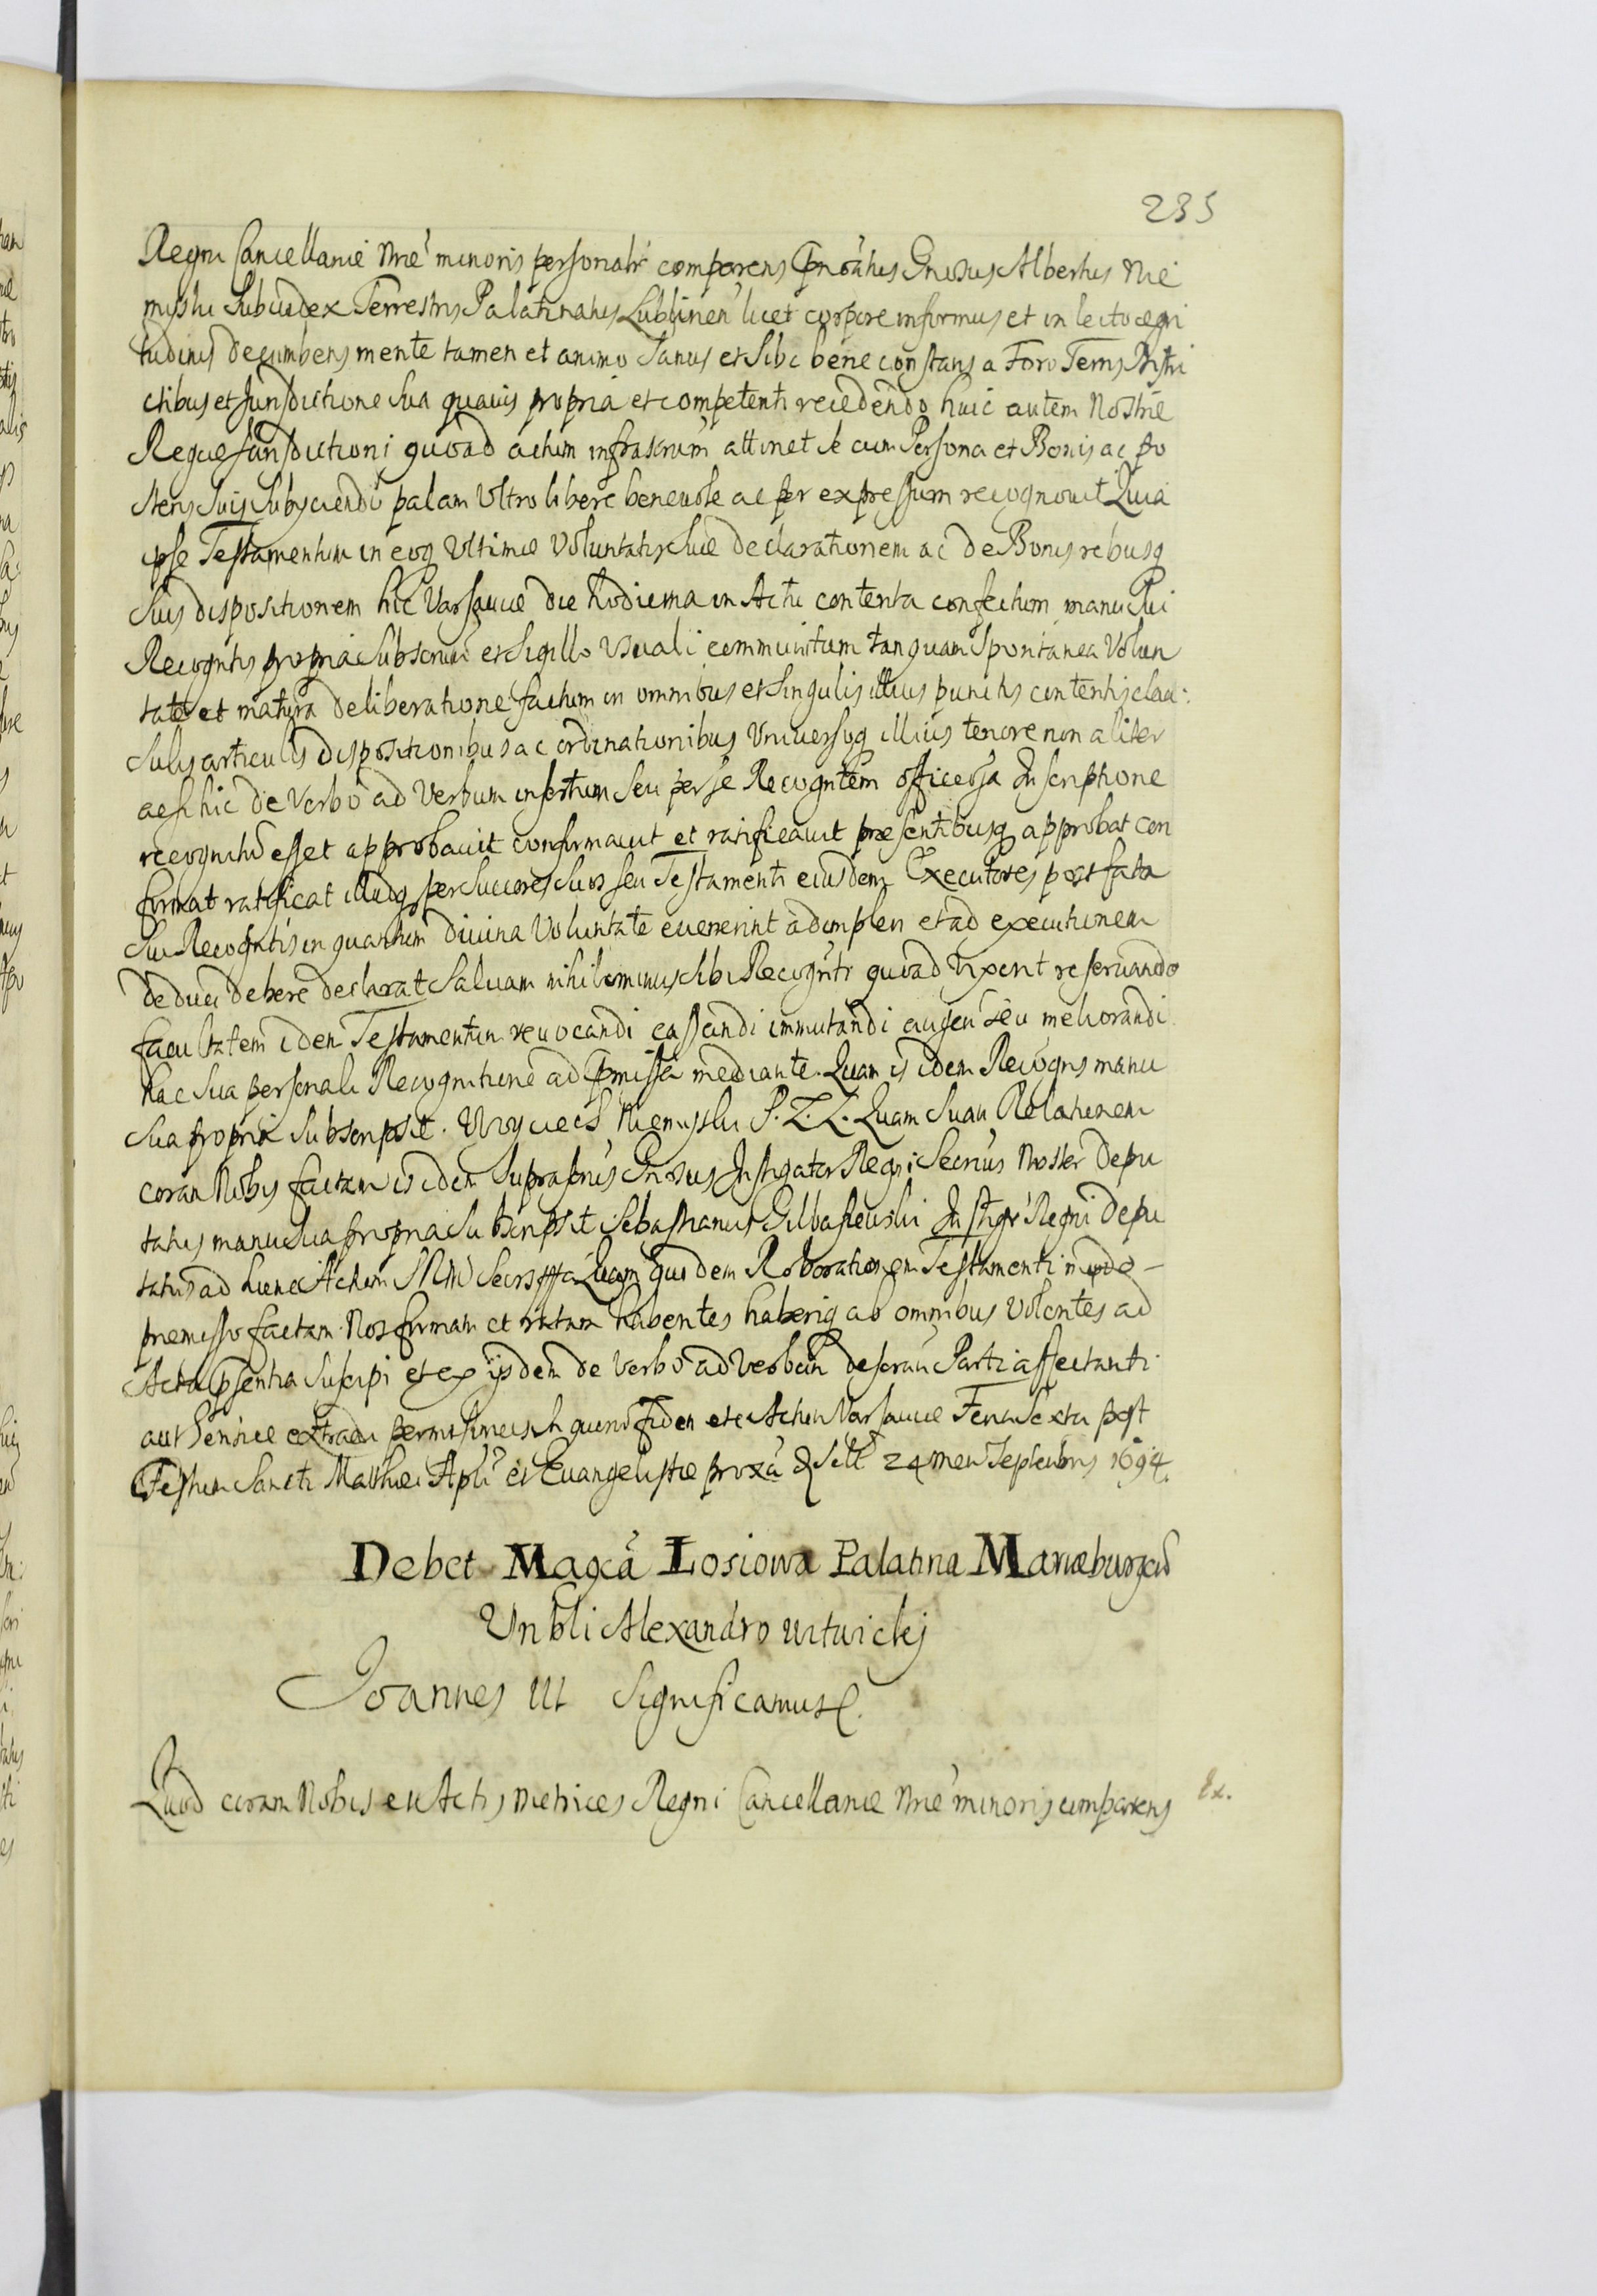 235
Regni Cancellariæ Nræ minoris personalr comparens Pnôatus Gnosus Albertus Nie
myski Subiudex Terrestris Palatinatus Lublinen licet corpore infirmus et in lecto ægri
tudinis decumbens mente tamen et animo Sanus et Sibi bene constans a Foro Terris Distri
ctibus et Jurisdictione Sua quavis propria et competenti recedendo huic autem Nostræ
Regiæ Jurisdictioni quoad actum infrascrum attinet se cum Persona et Bonis ac po
steris Suis Subyciendo palam Ultro libere benevole ac per expressum recognovit Quia
ipse Testamentum in eoq Ultimæ Voluntatis Suæ declarationem ac de Bonis rebusq
Suis dispositionem hic Varsaviæ die hodierna in Actu contenta confectum manu Sui
Recogntis propria Subscrium et Sigillo Usuali communitum tanquam Spontanea Volun
tate et matura deliberatione factum in omnibus et Singulis illius punctis contentis clau:
Sulis articulis dispositionibus ac ordinationibus Universoq illius tenore non aliter
ac si hic de Verbo ad Verbum insertum Seu per se Recogntem officiosa Inscriptione
recognitu esset approbavit confirmavit et ratificavit præsentibusq approbat con
firmat ratificat illudq per Succores Suos seu Testamenti eiusdem Executores post fata
Sui Recogntis in quantum divina Voluntate evenerint adimpleri et ad executionem
deduci debere declarat Salvam nihilominus Sibi Recognti quoad vixerit reservando
facultatem idem Testamentum revocandi cassandi immutandi augen seu meliorandi
hac Sua personali Recognitione ad Pmissa mediante. Quam is idem Recogns manu
Sua propria Subscripsit. Woyciech Niemyski P. Z. L. Quam Suam Relationem
coram Nobis factam is idem Supraspnus Gnosus Instigator Regni Secrius Noster depu
tatus manu Sua propria Subscripsit Sebastianus Gilbaszewski Instigr Regni depu
tatus ad hunc Actum SRM Secrs Quam quidem Roborationem Testamenti modo
præmisso factam Nos firmam et ratam habentes haberiq ab omnibus Volentes ad
Acta Psentia Suscipi et ex ijsdem de Verbo ad Verbum descram Parti affectanti
authentice extradi permisimus In quorum fidem etc Actum Varsaviæ Feria Sexta post
Festum Sancti Matthæi Apli et Evangelistæ proxa & Scilt 24 men Septembris 1694.
Debet Magca Losiowa Palatina Mariæburgen
Unbli Alexandro Witwickj
Joannes III Significamus
Quod coram Nobis et Actis Metrices Regni Cancellariæ Nræ minoris comparens
Ex.